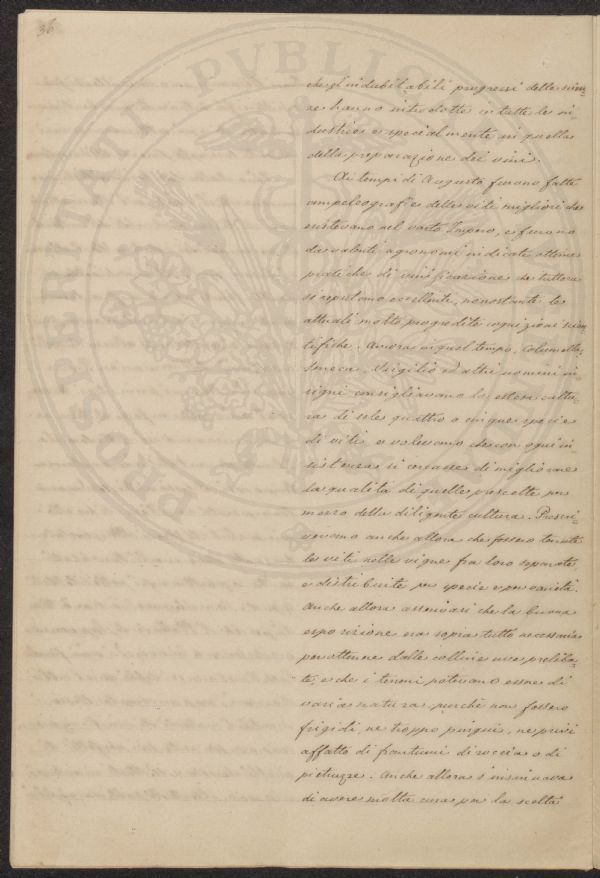 36
che gl'indubitabili progressi delle scien-
ze hanno introdotte in tutte le in-
dustrie e specialmente in quella
della preparazione dei vini.
Ai tempi di Augusto furono fatte
ampelografie delle viti migliori che
esistevano nel vasto Impero, e furono
da valenti agronomi indicate ottime
pratiche di vinificazione che tuttora
si reputano eccellenti, nonostante le
attuali molto progredite cognizioni scien-
tifiche. Ancora in quel tempo, Columella,
Seneca, Virgilio ed altri uomini in-
signi consigliavano la estesa cultu-
ra di sole quattro o cinque specie
di viti e volevano che con ogni in-
sistenza si cercasse di migliorare
la qualità di quelle prescelte per
mezzo della diligente cultura. Prescri-
vevano anche allora che fossero tenute
le viti nelle vigne fra loro separate
e distribuite per specie e per varietà.
Anche allora asserivasi che la buona
esposizione era sopra tutto necessaria
per ottenere dalle colline uve preliba-
te, e che i terreni potevano essere di
varia natura perchè non fossero
frigidi, ne troppo pingui, ne privi
affatto di frantumi di roccia o di
pietruzze. Anche allora s'insinuava
di avere molta cura per la scelta
PROSPERITATI PVBLIC